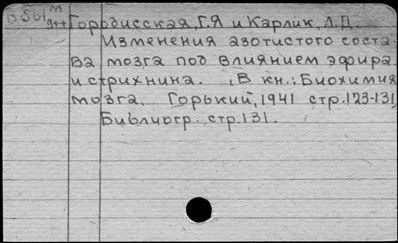 Б561м
9++ Городисская, Г.Я и Карлик, Л.Д.
Изменения азотистого соста-
ва мозга под влиянием эфира
и стрихнина. В кн.: Биохимия
мозга. Горький, 1941 стр. 123-131
Библиогр. стр. 131.